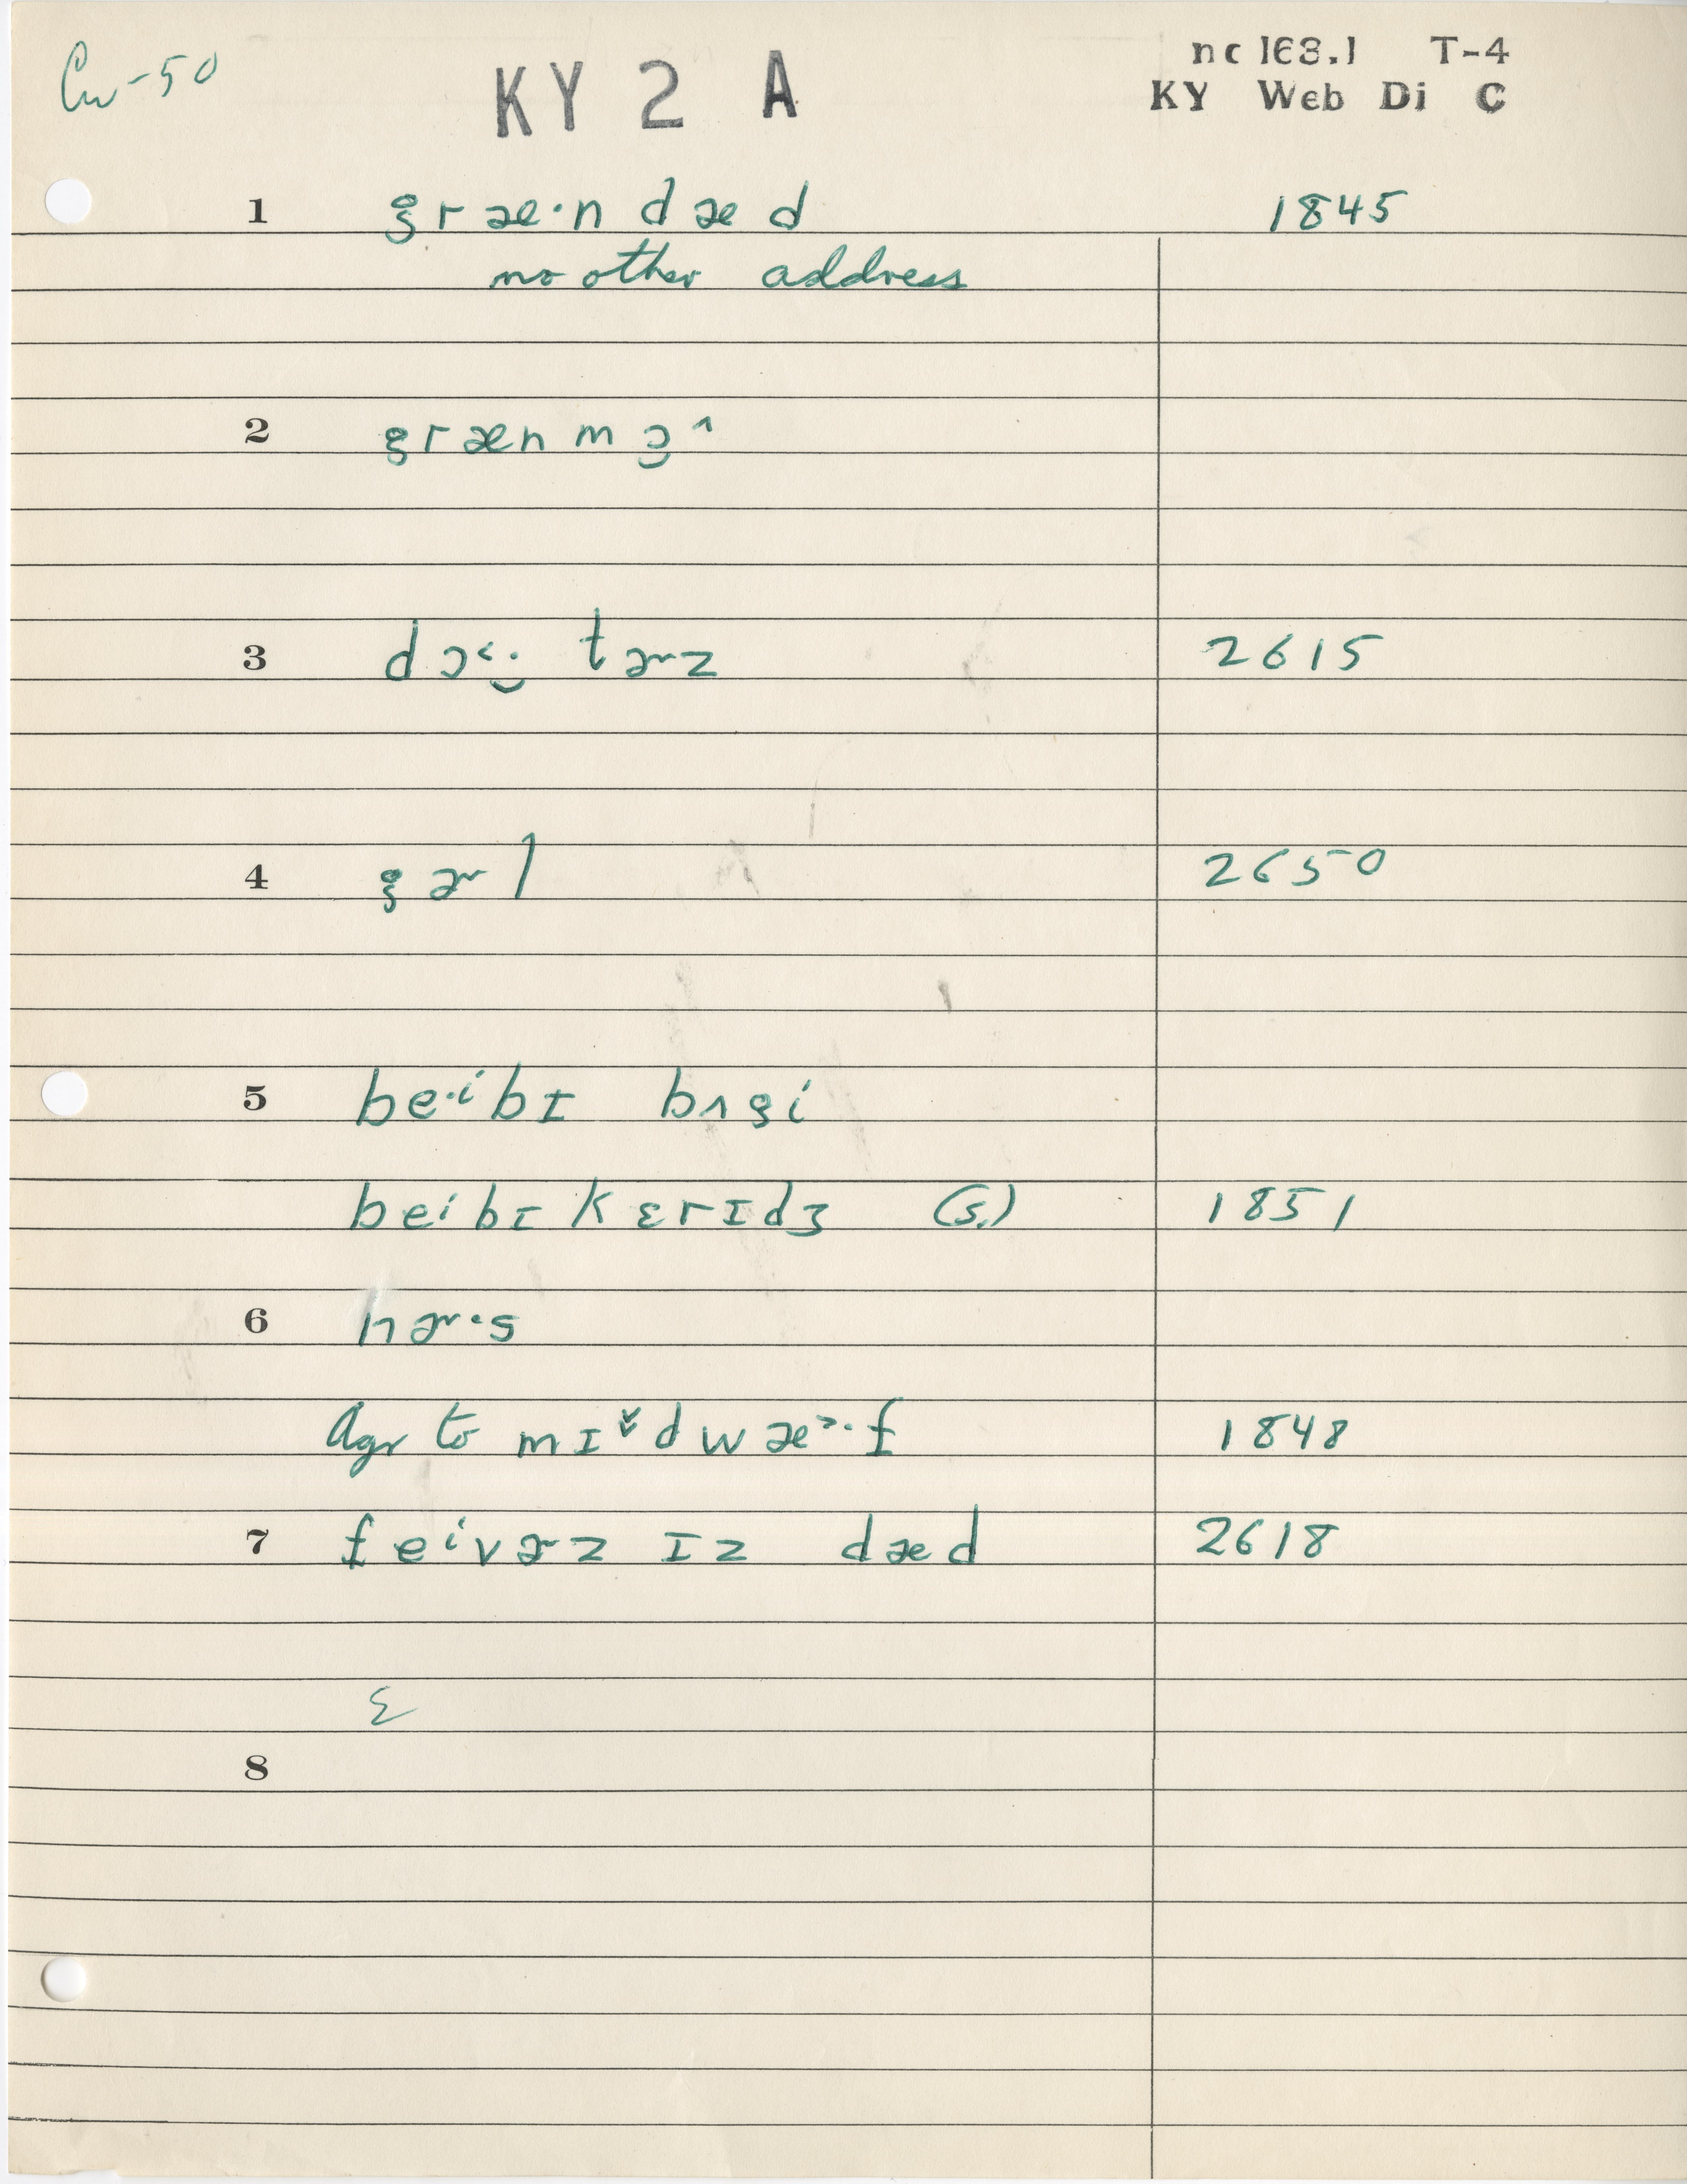 Cw-50 KY 2 A nc 163.1 T-4
KY Web Di C
1 græ·n dæd 1845
no other address
2 græn mɔ̯^
3 dɔ˂·̯ tɚz 2615
4 gɚl 2650
5 be·ⁱbɪ bʌgi
beⁱbɪ kɛrɪdʒ (s.) 1851
6 nɚ·s
Agr to mɪˇdwæ˃·f 1848
7 feⁱvɚz ɪz dæd 2618
Σ
8